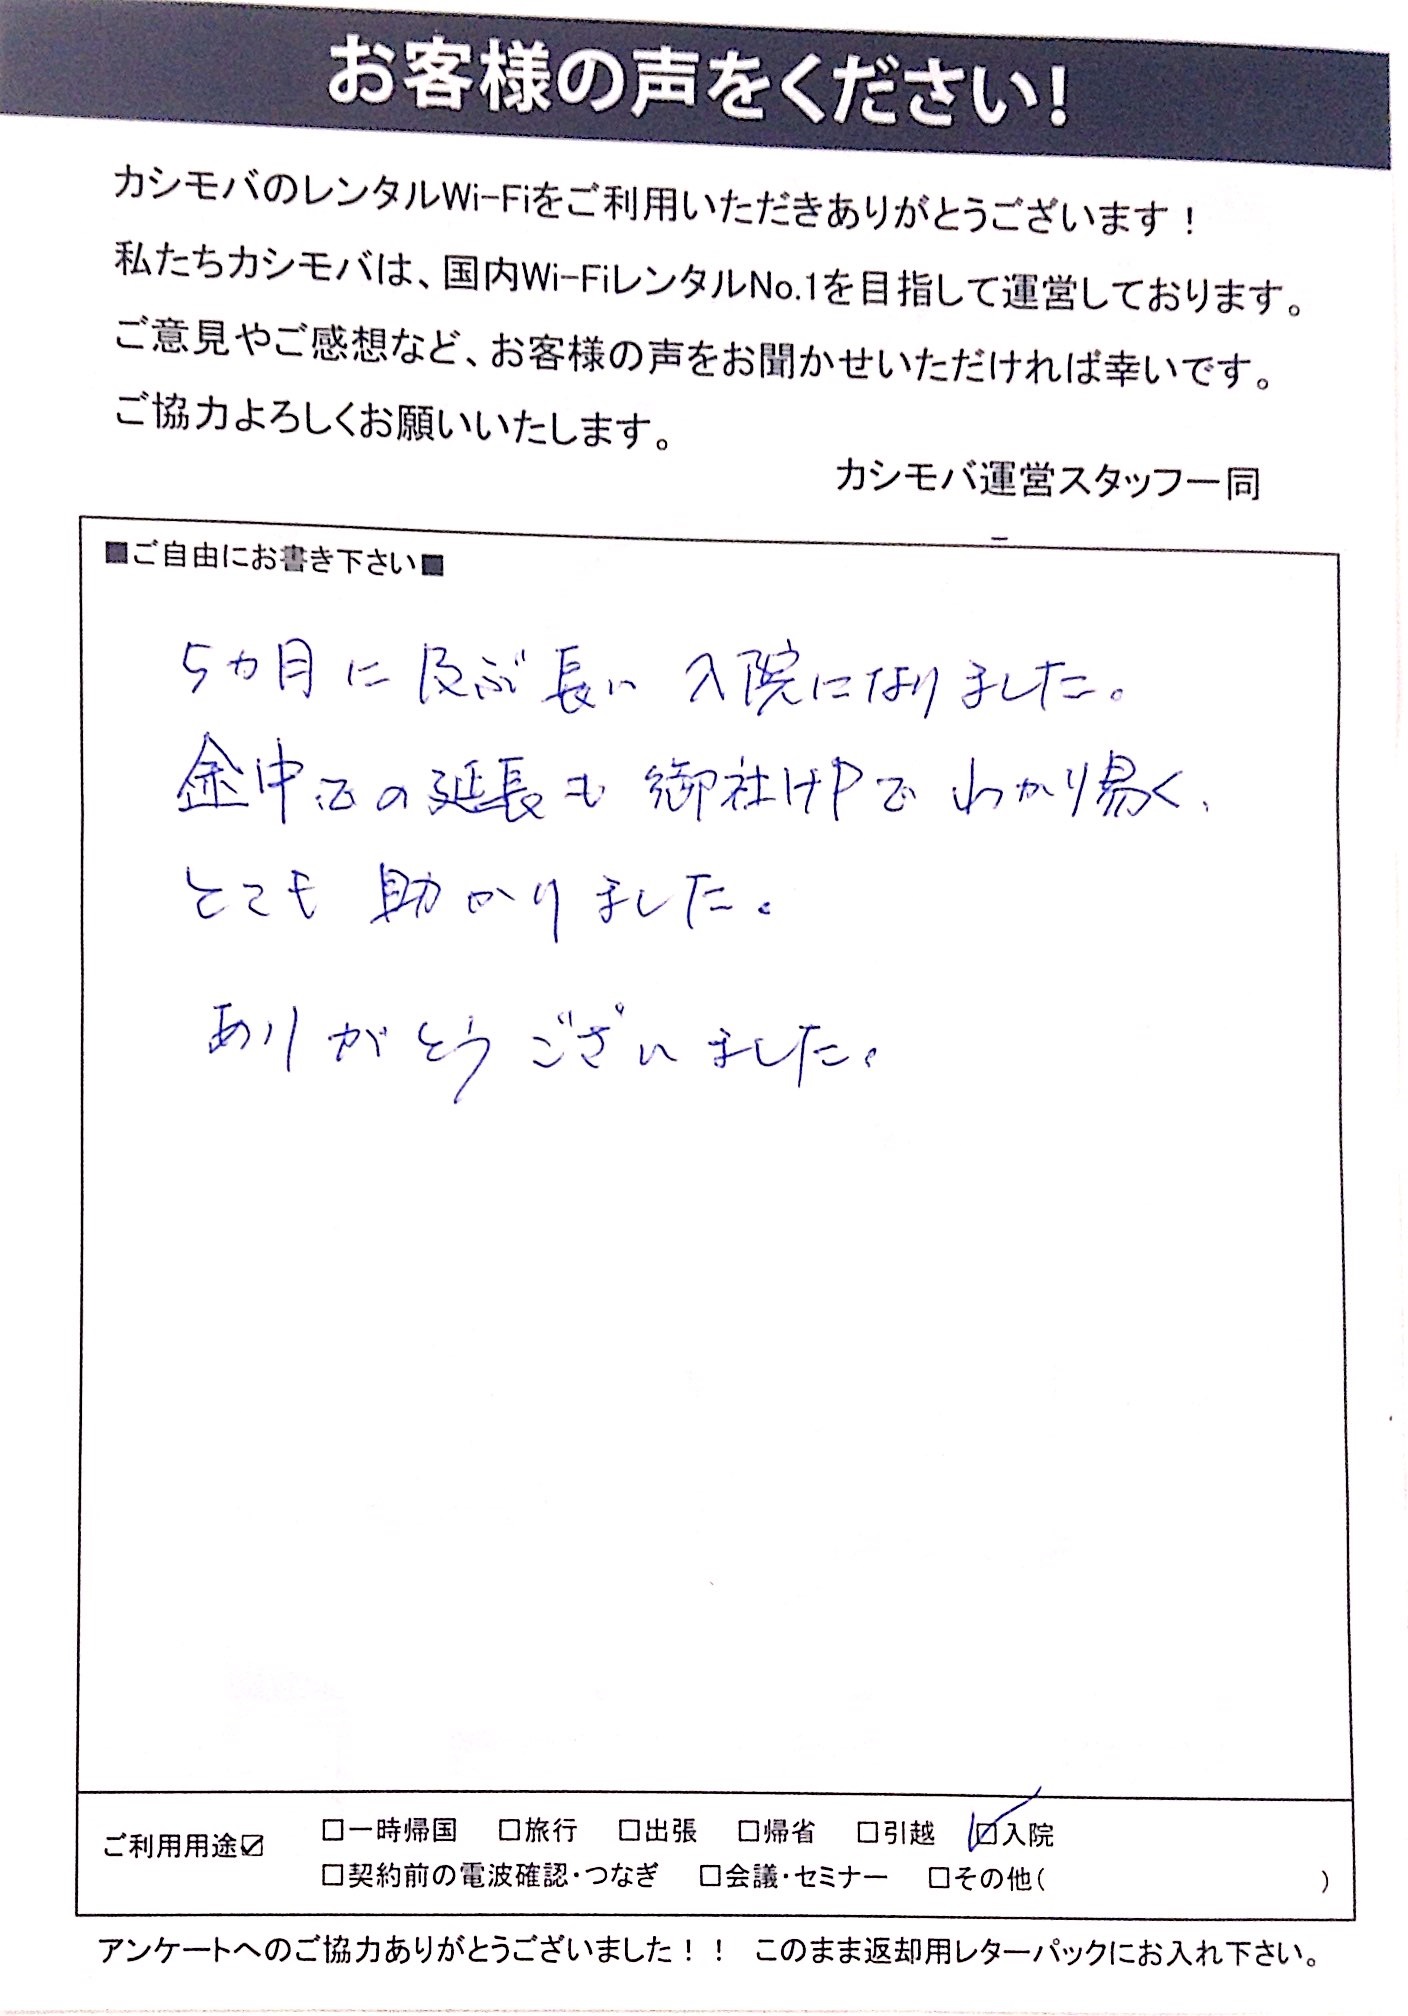 お客様の声をください!
カシモバのレンタルWi-Fiをご利用いただきありがとうございます！
私たちカシモバは、国内Wi-FiレンタルNo.1を目指して運営しております。
ご意見やご感想など、お客様の声をお聞かせいただければ幸いです。
ご協力よろしくお願いいたします。
カシモバ運営スタッフ一同
■ご自由にお書き下さい■
5カ月に及ぶ長い入院になりました。
中での延長も御社HPでわかり易く、
とても助かりました。
ありがとうございました。
ご利用用途☑ □一時帰国 □旅行 □出張 □帰省 □引越 ☑入院
□契約前の電波確認・つなぎ □会議・セミナー □その他( )
アンケートへのご協力ありがとうございました！！ このまま返却用レターパックにお入れ下さい。